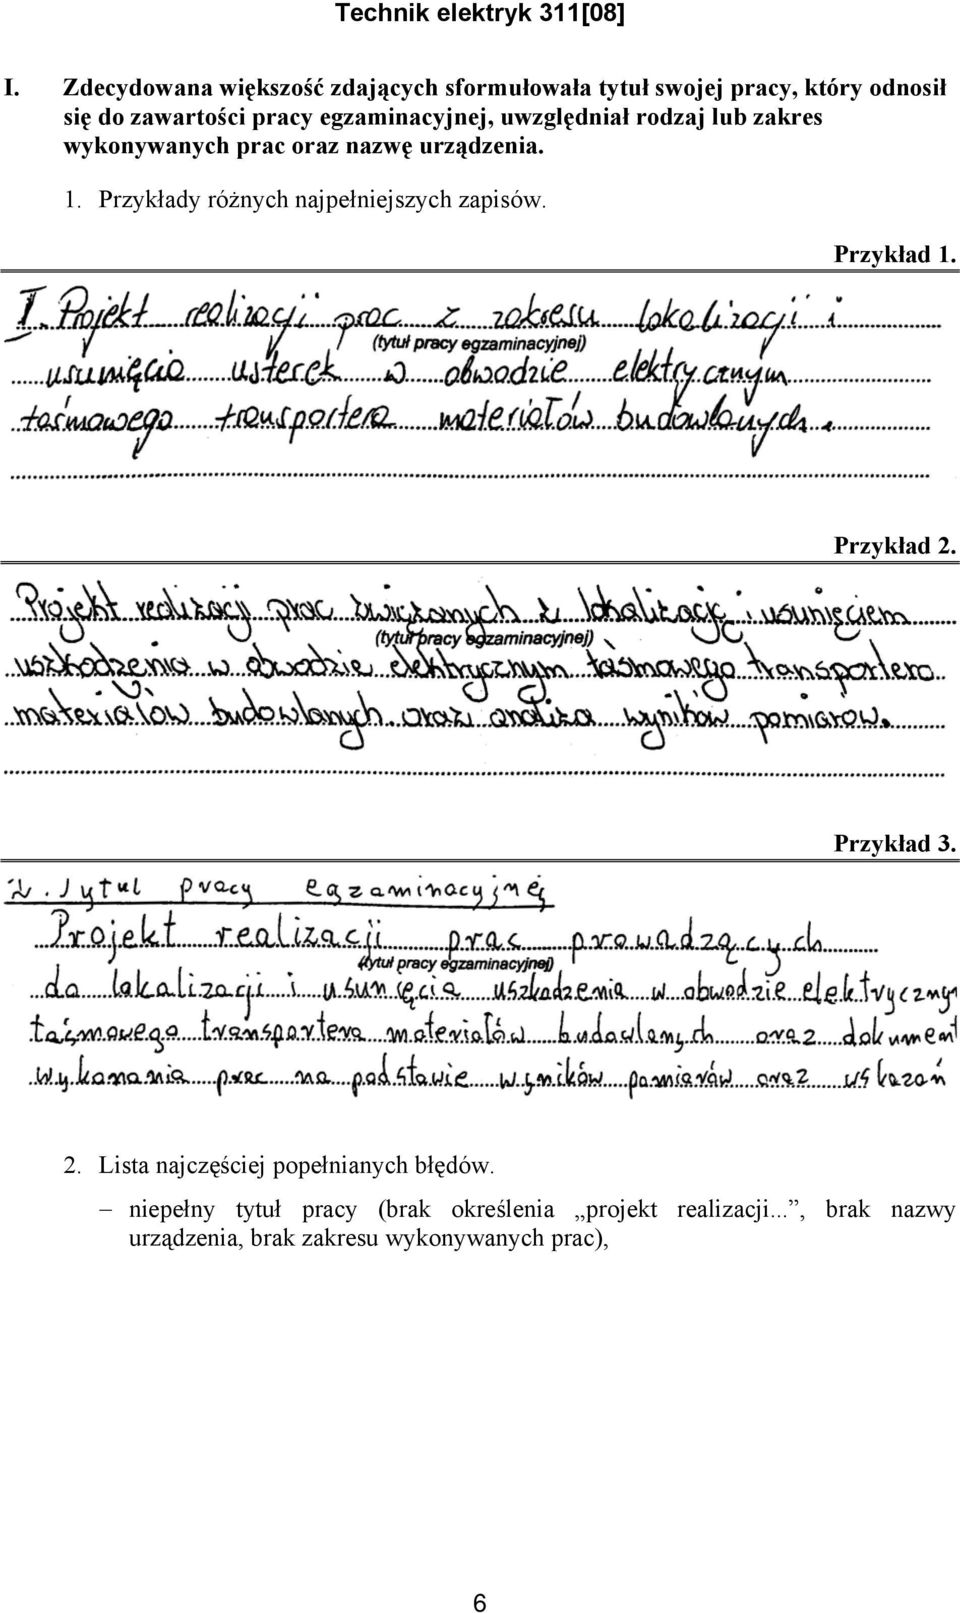 Technik elektryk 311[08]
I. Zdecydowana większość zdających sformułowała tytuł swojej pracy, który odnosił
się do zawartości pracy egzaminacyjnej, uwzględniał rodzaj lub zakres
wykonywanych prac oraz nazwę urządzenia.
1. Przykłady różnych najpełniejszych zapisów.
Przykład 1.
I. Projekt realizacji prac z zakresu lokalizacji i
(tytuł pracy egzaminacyjnej)
usunięcia usterek w obwodzie elektrycznym
taśmowego transportera materiałów budowlanych.
Przykład 2.
Projekt realizacji prac związanych z lokalizacją i usunięciem
(tytuł pracy egzaminacyjnej)
uszkodzenia w obwodzie elektrycznym taśmowego transportera
materiałów budowlanych oraz analiza wyników pomiarów.
Przykład 3.
1. Tytuł pracy egzaminacyjnej
Projekt realizacji prac prowadzących
(tytuł pracy egzaminacyjnej)
do lokalizacji i usunięcia uszkodzenia w obwodzie elektryczny
taśmowego transportera materiałów budowlanych oraz dokument
wykonania prac na podstawie wyników pomiarów oraz wskazań
2. Lista najczęściej popełnianych błędów.
– niepełny tytuł pracy (brak określenia „projekt realizacji... ”, brak nazwy
urządzenia, brak zakresu wykonywanych prac),
6